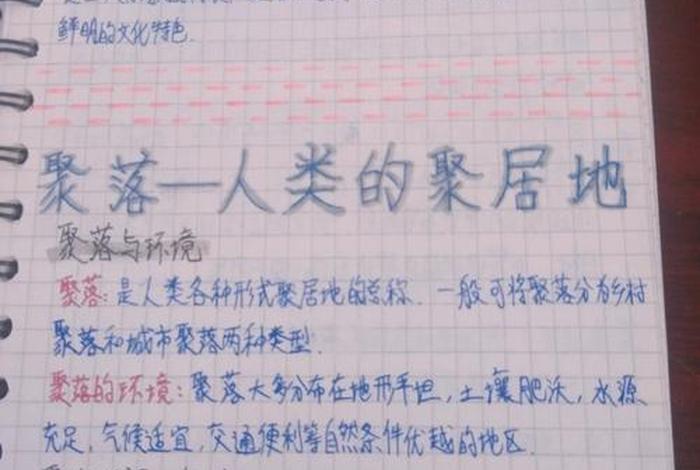 鲜明的文化特色.
聚落—人类的聚居地
聚落与环境
聚落:是人类各种形式聚居地的总称.一般可将聚落分为乡村
聚落和城市聚落两种类型.
聚落的环境:聚落大多分布在地形平坦,土壤肥沃,水源
充足,气候适宜,交通便利等自然条件优越的地区.